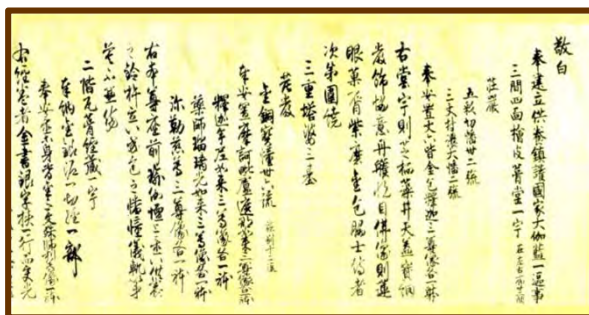 敬白
奉建立供養鎮護國家大伽藍一區事
三間四面檜皮葺堂一宇 在左右廊廿二間
莊嚴
五彩切幡卅二旒
三丈村濃大幡二旒
奉安置丈六皆金色釋迦三尊像各一躰
右堂宇則芝栭藻井天蓋寶網
嚴飾協意丹雘悦目佛像則蓮
眼菓脣紫磨金色脇士侍者
次第圍繞
三重塔婆三基
莊嚴
金銅寶幢卅六旒
奉安置摩訶毗盧遮那如來三尊像各一躰
釋迦牟尼如來三尊像各一躰
藥師瑠璃光如來三尊像各一躰
弥勒慈尊三尊像各一躰
右本尊座前瑜伽壇上
之鈴杵立以方色之幡幢儀軌
二階瓦葺經藏一宇
奉納金銀泥一切經一部
奉安置等身皆金色文殊師利尊像一躰
右經卷者金書銀字挾一行而交光